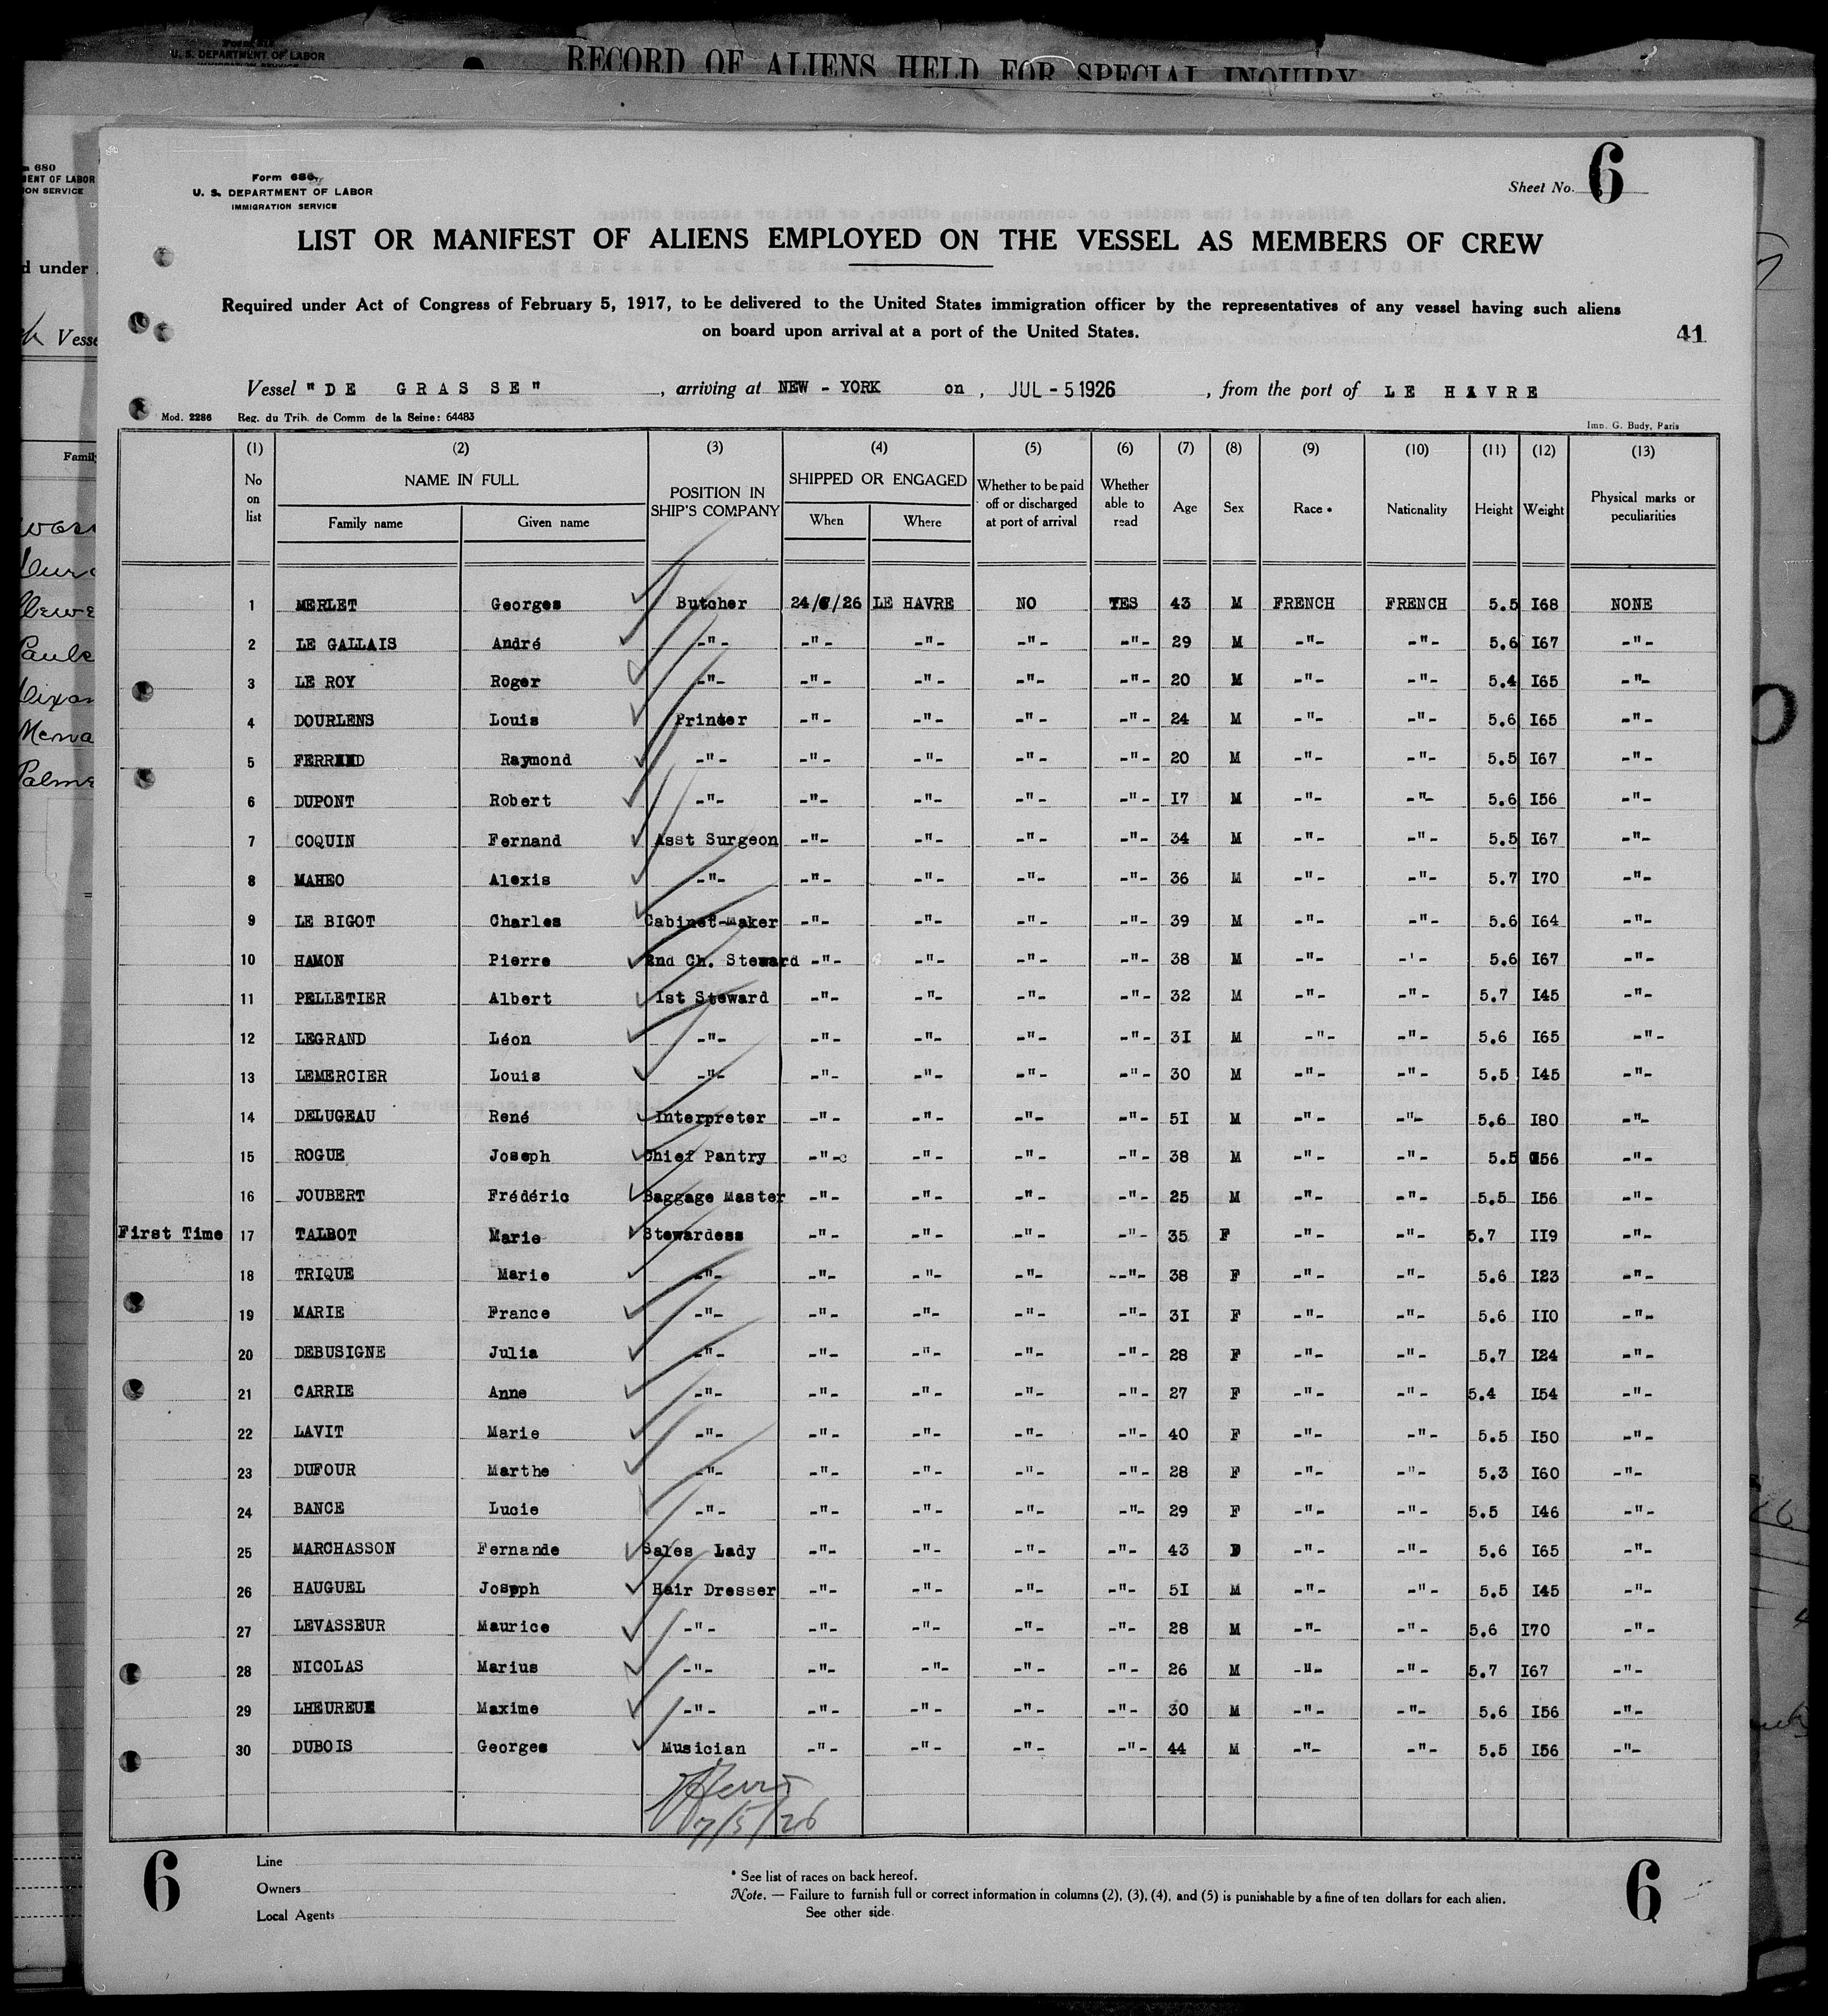 Form 680
U. S. DEPARTMENT OF LABOR
RECORD OF ALIENS HELD FOR SPECIAL INQUIRY
680
ENT OF LABOR
ION SERVICE
d under
Vesse
Famil
Form 686
U. S. DEPARTMENT OF LABOR
IMMIGRATION SERVICE
Sheet No. 6
LIST OR MANIFEST OF ALIENS EMPLOYED ON THE VESSEL AS MEMBERS OF CREW
Required under Act of Congress of February 5, 1917, to be delivered to the United States immigration officer by the representatives of any vessel having such aliens
on board upon arrival at a port of the United States.
41
Vessel "DE GRASSE", arriving at NEW - YORK on, JUL - 5 1926, from the port of LE HAVRE
Mod. 2286 Reg. du Trib. de Comm. de la Seine: 64483 Imp. G. Budy, Paris
(1) (2) (3) (4) (5) (6) (7) (8) (9) (10) (11) (12) (13)
No on list NAME IN FULL POSITION IN SHIP'S COMPANY SHIPPED OR ENGAGED Whether to be paid off or discharged at port of arrival Whether able to read Age Sex Race * Nationality Height Weight Physical marks or peculiarities
Family name Given name When Where
1 MERLET Georges Butcher 24/6/26 LE HAVRE NO YES 43 M FRENCH FRENCH 5.5 I68 NONE
2 LE GALLAIS André -"- -"- -"- -"- -"- 29 M -"- -"- 5.6 I67 -"-
3 LE ROY Roger -"- -"- -"- -"- -"- 20 M -"- -"- 5.4 I65 -"-
4 DOURLENS Louis Printer -"- -"- -"- -"- 24 M -"- -"- 5.6 I65 -"-
5 Raymond -"- -"- -"- -"- -"- 20 M -"- -"- 5.5 I67 -"-
6 DUPONT Robert -"- -"- -"- -"- -"- I7 M -"- -"- 5.6 I56 -"-
7 COQUIN Fernand Asst Surgeon -"- -"- -"- -"- 34 M -"- -"- 5.5 I67 -"-
8 MAHEO Alexis -"- -"- -"- -"- -"- 36 M -"- -"- 5.7 I70 -"-
9 LE BIGOT Charles Cabinet-Maker -"- -"- -"- -"- 39 M -"- -"- 5.6 I64 -"-
10 HAMON Pierre 2nd Ch. Steward -"- -"- -"- -"- 38 M -"- -'- 5.6 I67 -"-
11 PELLETIER Albert Ist Steward -"- -"- -"- -"- 32 M -"- -"- 5.7 I45 -"-
12 LEGRAND Léon -"- -"- -"- -"- -"- 3I M -"- -"- 5.6 I65 -"-
13 LEMERCIER Louis -"- -"- -"- -"- -"- 30 M -"- -"- 5.5 I45 -"-
14 DELUGEAU René Interpreter -"- -"- -"- -"- 5I M -"- -"- 5.6 I80 -"-
15 ROGUE Joseph Chief Pantry -"- -"- -"- -"- 38 M -"- -"- 5.5 I56 -"-
16 JOUBERT Frédéric Baggage Master -"- -"- -"- -"- 25 M -"- -"- 5.5 I56 -"-
First Time 17 TALBOT Marie Stewardess -"- -"- -"- -"- 35 F -"- -"- 5.7 II9 -"-
18 TRIQUE Marie -"- -"- -"- -"- --"- 38 F -"- -"- 5.6 I23 -"-
19 MARIE France -"- -"- -"- -"- -"- 3I F -"- -"- 5.6 II0 -"-
20 DEBUSIGNE Julia -"- -"- -"- -"- -"- 28 F -"- -"- 5.7 I24 -"-
21 CARRIE Anne -"- -"- -"- -"- -"- 27 F -"- -"- 5.4 I54 -"-
22 LAVIT Marie -"- -"- -"- -"- -"- 40 F -"- -"- 5.5 I50 -"-
23 DUFOUR Marthe -"- -"- -"- -"- -"- 28 F -"- -"- 5.3 I60 -"-
24 BANCE Lucie -"- -"- -"- -"- -"- 29 F -"- -"- 5.5 I46 -"-
25 MARCHASSON Fernande Sales Lady -"- -"- -"- -"- 43 -"- -"- 5.6 I65 -"-
26 HAUGUEL Joseph Hair Dresser -"- -"- -"- -"- 5I M -"- -"- 5.5 I45 -"-
27 LEVASSEUR Maurice -"- -"- -"- -"- -"- 28 M -"- -"- 5.6 I70 -"-
28 NICOLAS Marius -"- -"- -"- -"- -"- 26 M -"- -"- 5.7 I67 -"-
29 LHEUREUX Maxime -"- -"- -"- -"- -"- 30 M -"- -"- 5.6 I56 -"-
30 DUBOIS Georges Musician -"- -"- -"- -"- 44 M -"- -"- 5.5 I56 -"-
7/5/26
6
Line
Owners
Local Agents
* See list of races on back hereof.
Note. — Failure to furnish full or correct information in columns (2), (3), (4), and (5) is punishable by a fine of ten dollars for each alien.
See other side.
6